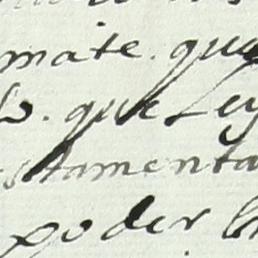 mate. qu
que Ley
stamenta
poder